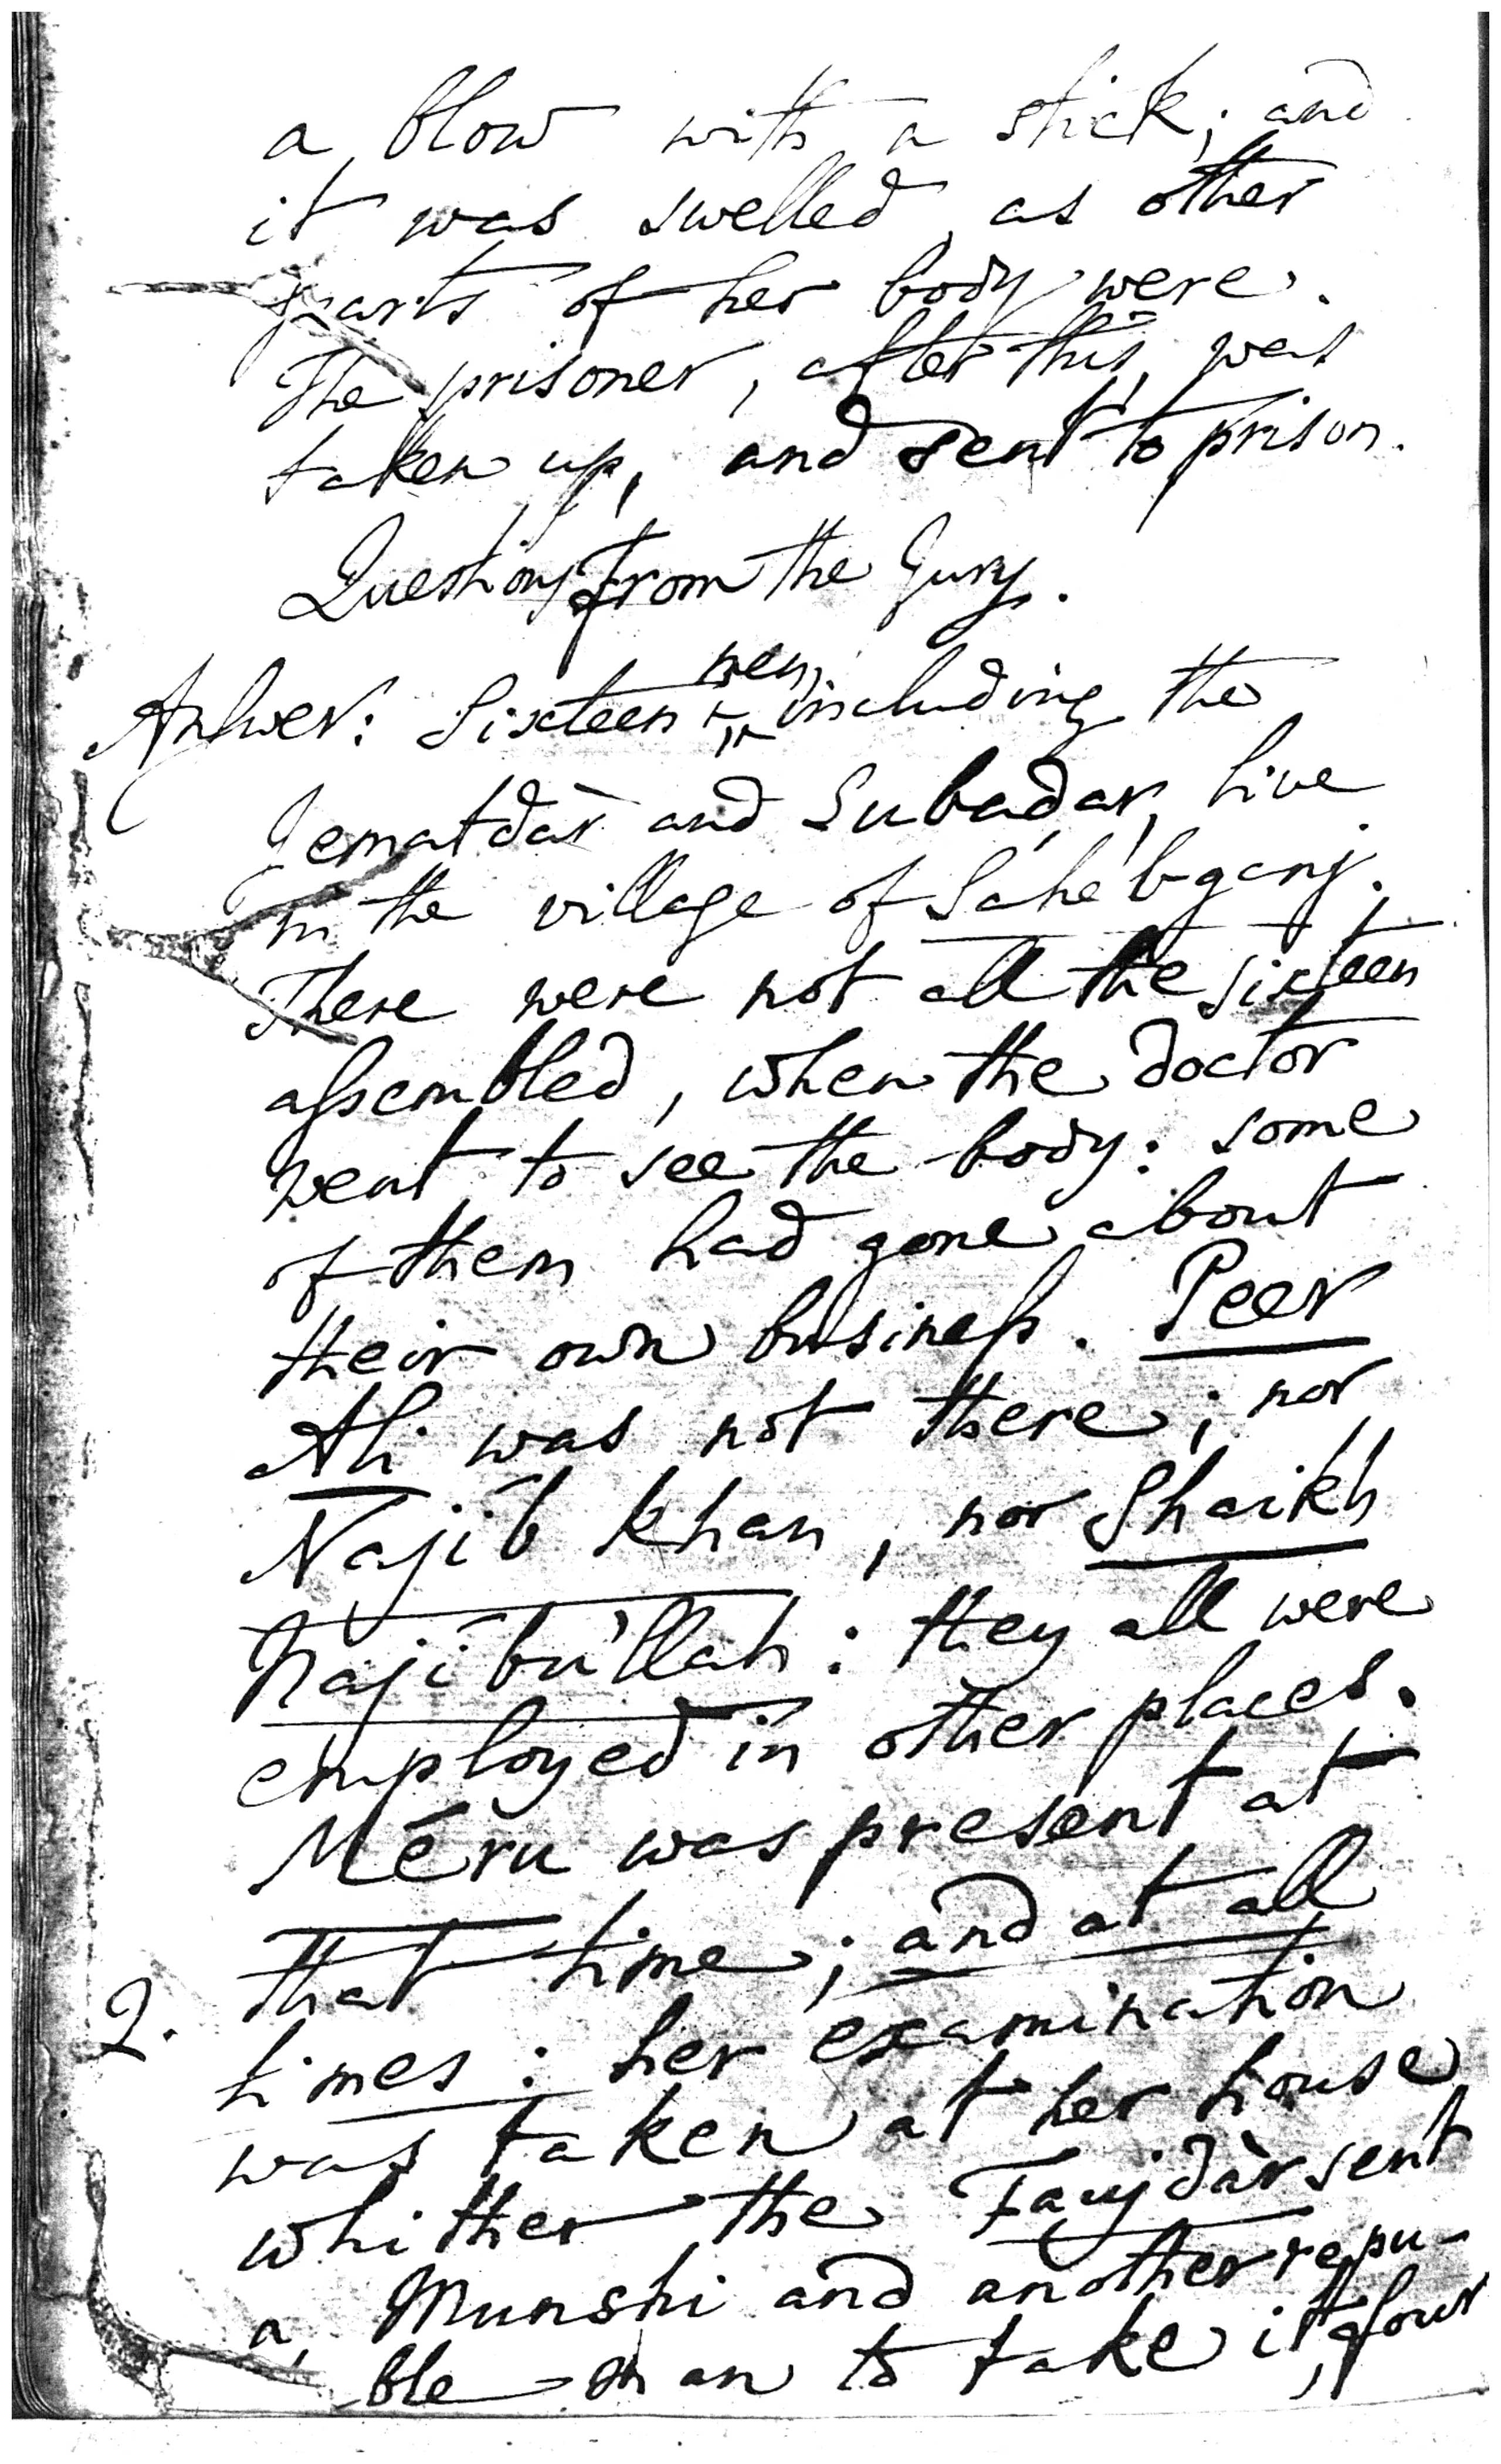 a blow with a stick; and
it was swelled, as other
parts of her body were.
The prisoner, after this, was
taken up, and sent to prison.
Questions from the Jury.
men,
Answer: Sixteen including the
Jematdàr and Subadar, live
in the village of Sahébganj.
There were not all the sixteen
assembled, when the doctor
went to see the body: some
of them had gone about
their own business. Peer
Ali was not there; nor
Najíb Khan, nor Shaikh
Najíbu'llah: they all were
employed in other places.
Méru was present at
that time; and at all
2. times: her examination
was taken at her house
whither the Faujdàr sent
a Munshi and another repu-
ble man to take it, four